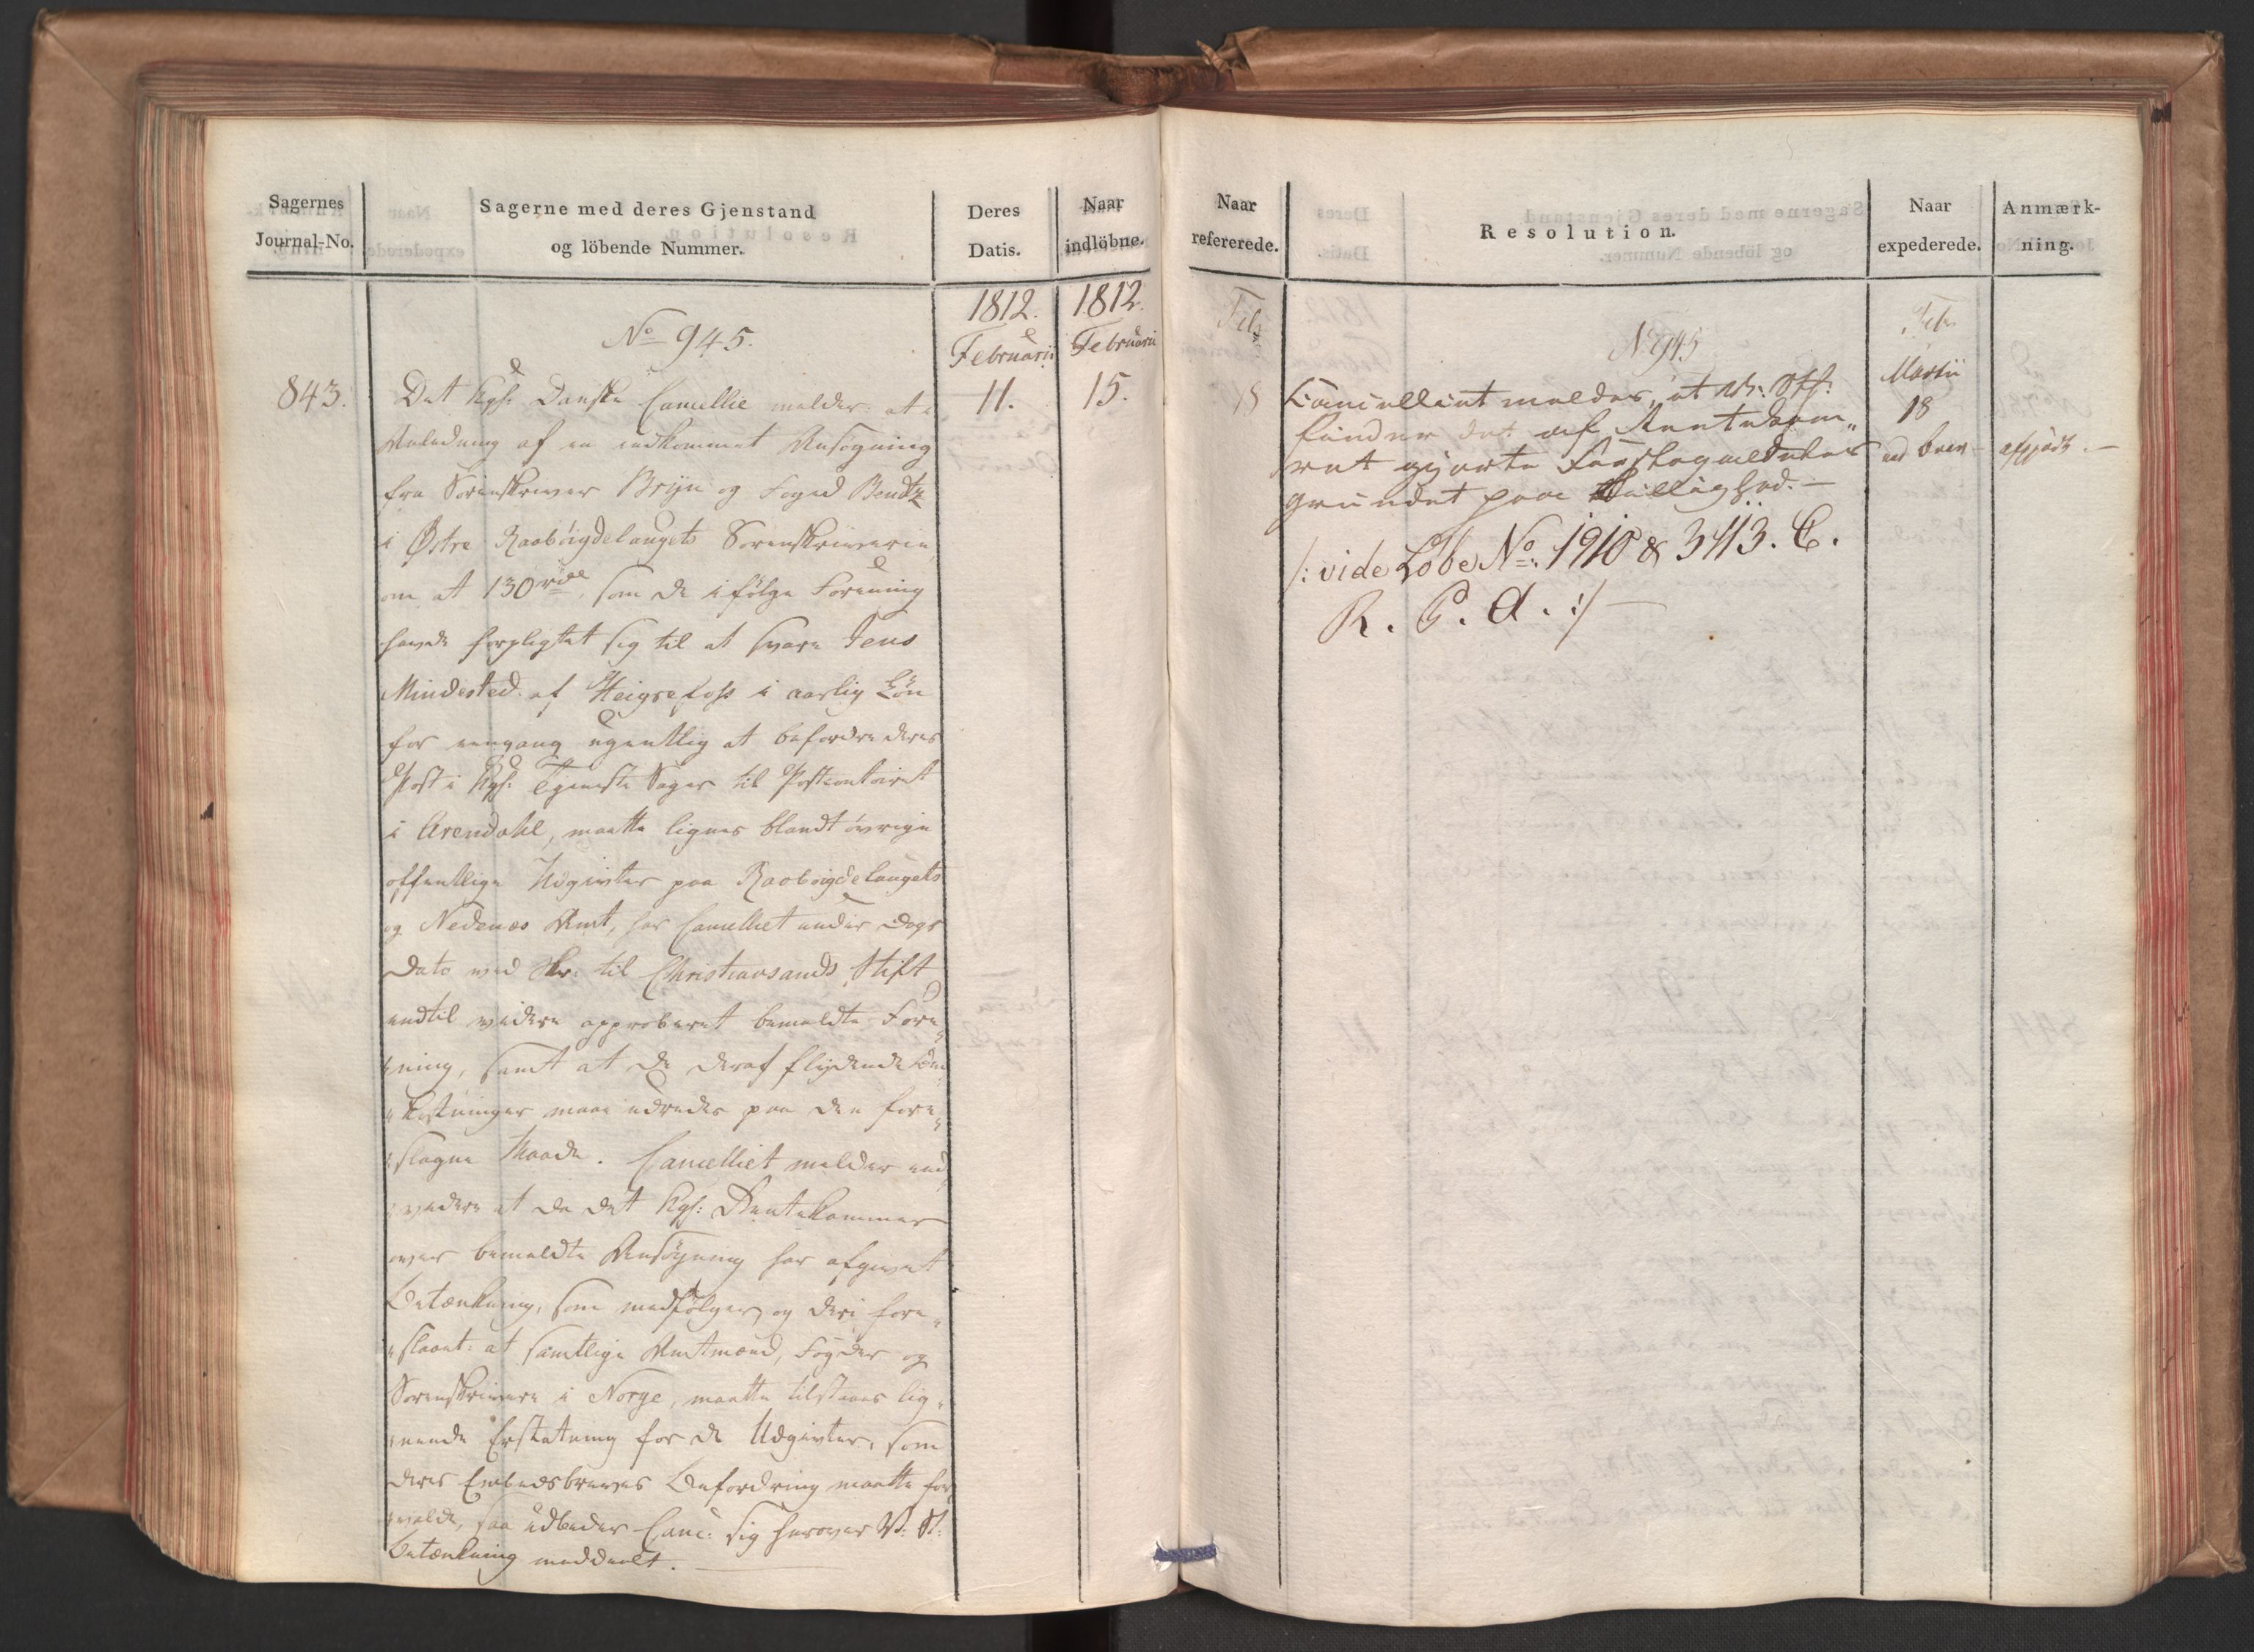 Sagernes
Journal-No.
Sagerne med deres Gjenstand
og löbende Nummer.
Deres
Datis.
Naar
indlöbne.
1812.
Februarii
1812.
Februarii
No 945.
843.
11.
15.
Det Kgl: Danske Cancellie melder at i
Anledning af en indkommet Ansøgning
fra Sorenskriver Bryn og Foged Bendtz
i Østre Raabøigdelaugets Sorenskriverie
om at 130 rdl, som de ifølge Forening
havde forpligtet sig til at svare Jens
Mindested af Heigrefoss i aarlig Løn
for eengang ugentlig at befordre deres
Post i Kgl: Tjeneste Sager til Postcontoiret
i Arendahl, maatte lignes blandt øvrige
offentlige Udgivter paa Raaboigdelaugets
og Nedenæs Amt, har Cancelliet under Dags
Dato ved Skr: til Christiansands Stift
indtil videre approberet bemeldte Fore-
ning, samt at de deraf flydende Om-
kostninger maae udredes paa den fore-
slagne Maade. Cancelliet melder end
videre at da det Kgl: Rentekammer
over bemeldte Ansøgning har afgivet
Betænkning, som medfølger, og deri fore-
slaaet: at samtlige Amtmænd, Fogder og
Sorenskrivere i Norge, maatte tilstaaes lig-
nende Erstatning for de Udgivter, som
deres Embedsbreves Befordring maatte for
volde, saa udbeder Canc: sig herover
Betænkning meddeelt.
Naar
refererede.
Resolution.
Naar
expederede.
Anmærk-
ning.
Febr
18
No 945
Cancelliet meldes, at
finder det af Rentekam-
ret gjorte Forslag aldeles
grundet paa Billighed.
/: vide Løbe No: 1910 & 3413. C.
R. P. A. :/
Febr
Martii
18
ved brev
afgjort.